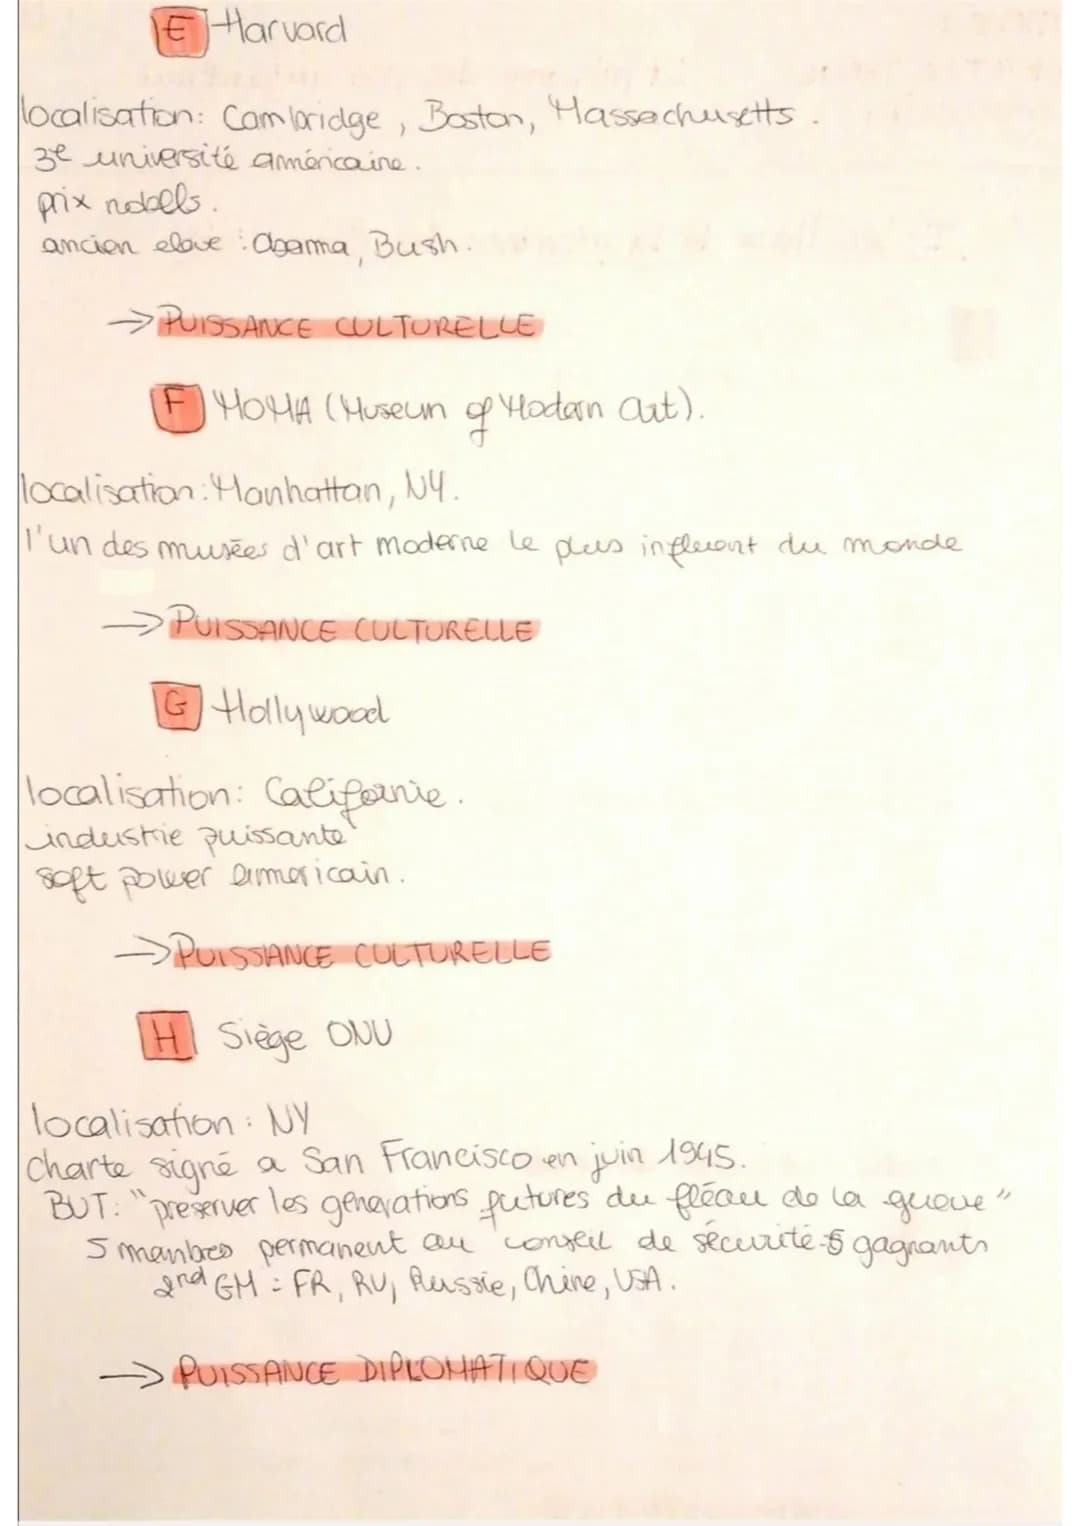 E Harvard
localisation: Cambridge, Boston, Massachusetts.
3e université américaine.
prix nobels.
ancien eleve : Obama, Bush.
→ PUISSANCE CULTURELLE
F MOMA (Museum of Modern Art).
localisation: Manhattan, NY.
l'un des musées d'art moderne le plus influent du monde
→ PUISSANCE CULTURELLE
G Hollywood
localisation: Californie.
industrie puissante
soft power americain.
→ PUISSANCE CULTURELLE
H Siège ONU
localisation: NY
Charte signé a San Francisco en juin 1945.
BUT: "preserver les générations futures du fléau de la guerre"
5 membres permanent au conseil de sécurité - 5 gagnants
2nd GM : FR, RU, Russie, Chine, USA.
→ PUISSANCE DIPLOMATIQUE